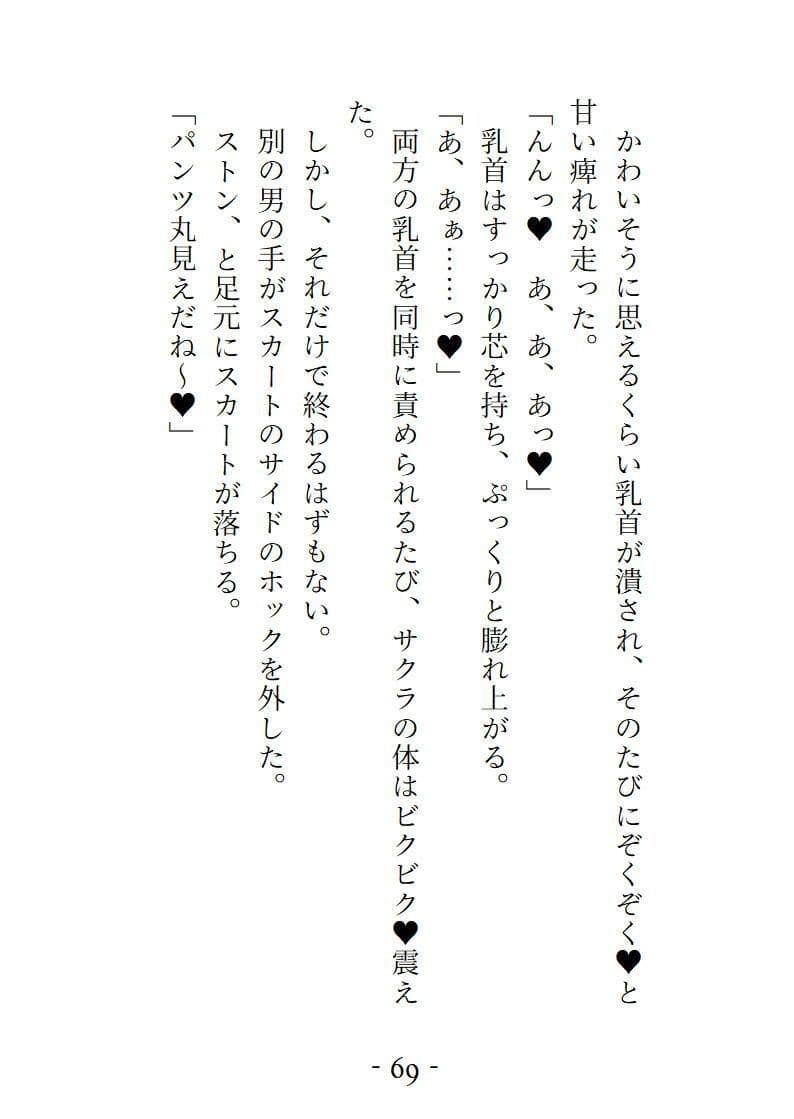 かわいそうに思えるくらい乳首が潰され、そのたびにぞくぞく♥と
甘い痺れが走った。
「んんっ♥　あ、あ、あっ♥」
乳首はすっかり芯を持ち、ぷっくりと膨れ上がる。
「あ、あぁ……っ♥」
両方の乳首を同時に責められるたび、サクラの体はビクビク♥震え
た。
しかし、それだけで終わるはずもない。
別の男の手がスカートのサイドのホックを外した。
ストン、と足元にスカートが落ちる。
「パンツ丸見えだね～♥」
- 69 -